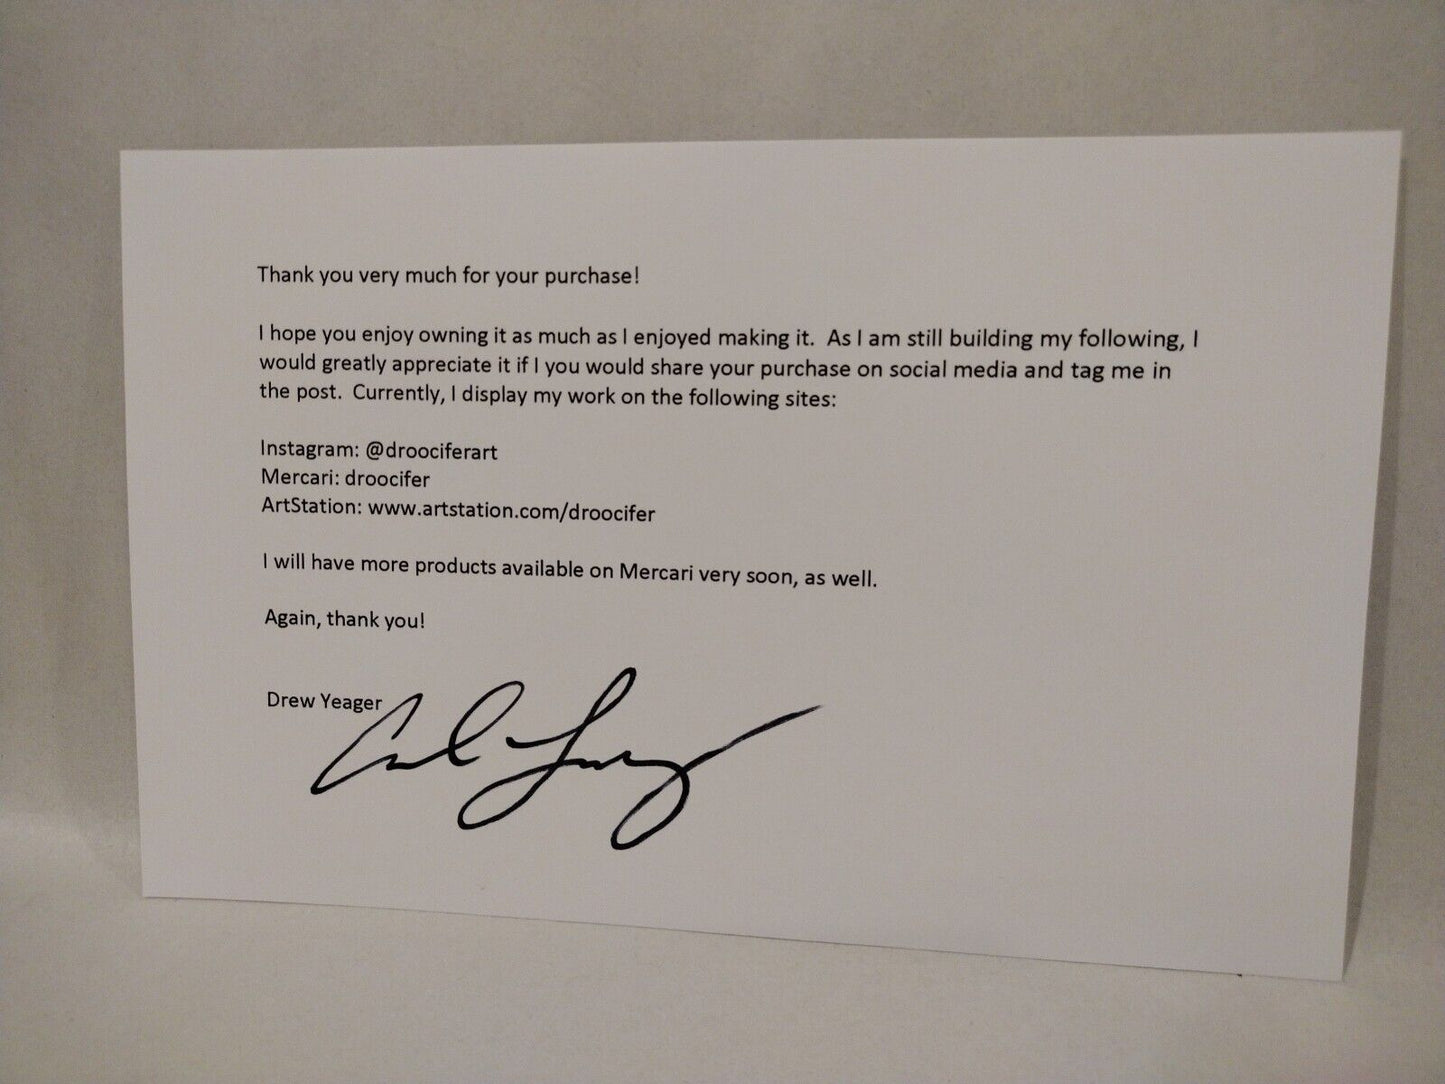 Thank you very much for your purchase!
I hope you enjoy owning it as much as I enjoyed making it.  As I am still building my following, I
would greatly appreciate it if I you would share your purchase on social media and tag me in
the post.  Currently, I display my work on the following sites:
Instagram: @droociferart
Mercari: droocifer
ArtStation: www.artstation.com/droocifer
I will have more products available on Mercari very soon, as well.
Again, thank you!
Drew Yeager